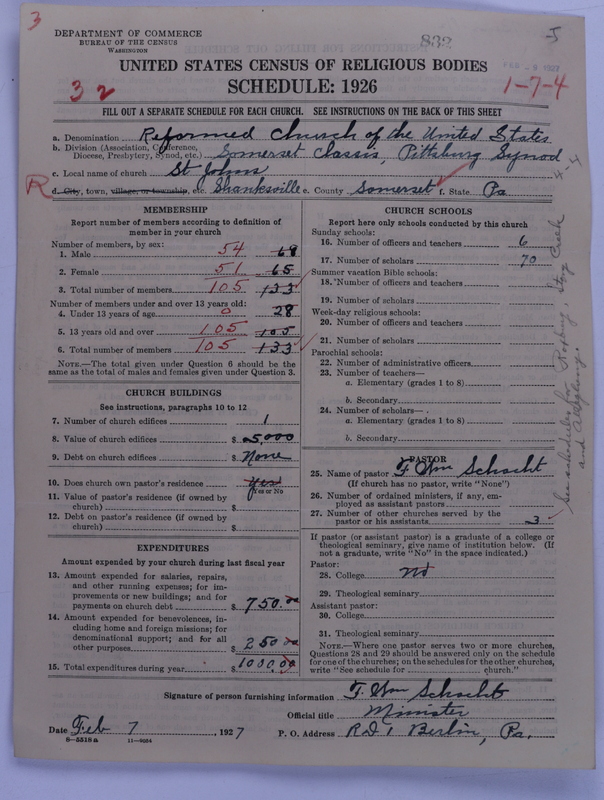 3
DEPARTMENT OF COMMERCE
BUREAU OF THE CENSUS
WASHINGTON
832
FEB -9 1927
UNITED STATES CENSUS OF RELIGIOUS BODIES
SCHEDULE: 1926
32
1-7-4
FILL OUT A SEPARATE SCHEDULE FOR EACH CHURCH. SEE INSTRUCTIONS ON THE BACK OF THIS SHEET
a. Denomination Reformed Church of the United States
b. Division (Association, Conference, Diocese, Presbytery, Synod, etc.) Somerset Classis, Pittsburg Synod
c. Local name of church St Johns
R d. City, town, village, or township, etc. Shanksville e. County Somerset f. State Pa
MEMBERSHIP
Report number of members according to definition of
member in your church
Number of members, by sex:
1. Male 54 68
2. Female 51 65
3. Total number of members 105 133
Number of members under and over 13 years old:
4. Under 13 years of age 0 28
5. 13 years old and over 105 105
6. Total number of members 105 133
NOTE.—The total given under Question 6 should be the
same as the total of males and females given under Question 3.
CHURCH BUILDINGS
See instructions, paragraphs 10 to 12
7. Number of church edifices 1
8. Value of church edifices $ 5,000
9. Debt on church edifices $ None
10. Does church own pastor's residence yes
Yes or No
11. Value of pastor's residence (if owned by
church) $
12. Debt on pastor's residence (if owned by
church) $
EXPENDITURES
Amount expended by your church during last fiscal year
13. Amount expended for salaries, repairs,
and other running expenses; for im-
provements or new buildings; and for
payments on church debt $ 750.00
14. Amount expended for benevolences, in-
cluding home and foreign missions; for
denominational support; and for all
other purposes $ 250.00
15. Total expenditures during year $ 1000.00
CHURCH SCHOOLS
Report here only schools conducted by this church
Sunday schools:
16. Number of officers and teachers 6
17. Number of scholars 70
Summer vacation Bible schools:
18. Number of officers and teachers
19. Number of scholars
Week-day religious schools:
20. Number of officers and teachers
21. Number of scholars
Parochial schools:
22. Number of administrative officers
23. Number of teachers—
a. Elementary (grades 1 to 8)
b. Secondary
24. Number of scholars—
a. Elementary (grades 1 to 8)
b. Secondary
PASTOR
25. Name of pastor F. Wm Schacht
(If church has no pastor, write "None")
26. Number of ordained ministers, if any, em-
ployed as assistant pastors
27. Number of other churches served by the
pastor or his assistants 3
If pastor (or assistant pastor) is a graduate of a college or
theological seminary, give name of institution below. (If
not a graduate, write "No" in the space indicated.)
Pastor:
28. College no
29. Theological seminary
Assistant pastor:
30. College
31. Theological seminary
NOTE.—Where one pastor serves two or more churches,
Questions 28 and 29 should be answered only on the schedule
for one of the churches; on the schedules for the other churches,
write "See schedule for church."
See schedules for Creek
and
Signature of person furnishing information F. Wm Schacht
Official title Minister
Date Feb 7, 1927 P. O. Address R.D. 1 Berlin, Pa.
8-5318a 11-9034